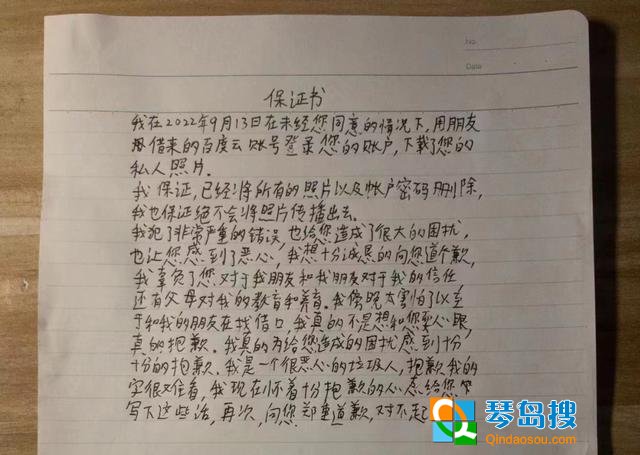 No.
Date
保证书
我在2022年9月13日在未经您同意的情况下,用朋友
借来的百度云账号登录您的账户,下载了您的
私人照片.
我保证,已经将所有的照片以及帐户密码删除,
我也保证绝不会将照片传播出去.
我犯了非常严重的错误,也给您造成了很大的困扰,
也让您感到了恶心,我想十分诚恳的向您道个歉,
我辜负了您,对于我朋友和我朋友对于我的信任
还有父母对我的教育和养育.我傍晚太害怕了以至
于和我的朋友在找借口,我真的不是想和您耍心眼,
真的抱歉.我真的为给您造成的困扰感到十分
十分的抱歉.我是一个很恶心的垃圾人,抱歉我的
字很难看,我现在怀着十分抱歉的心态给您
写下这些话,再次,向您郑重道歉,对不起
琴岛搜
Qindaosou.com